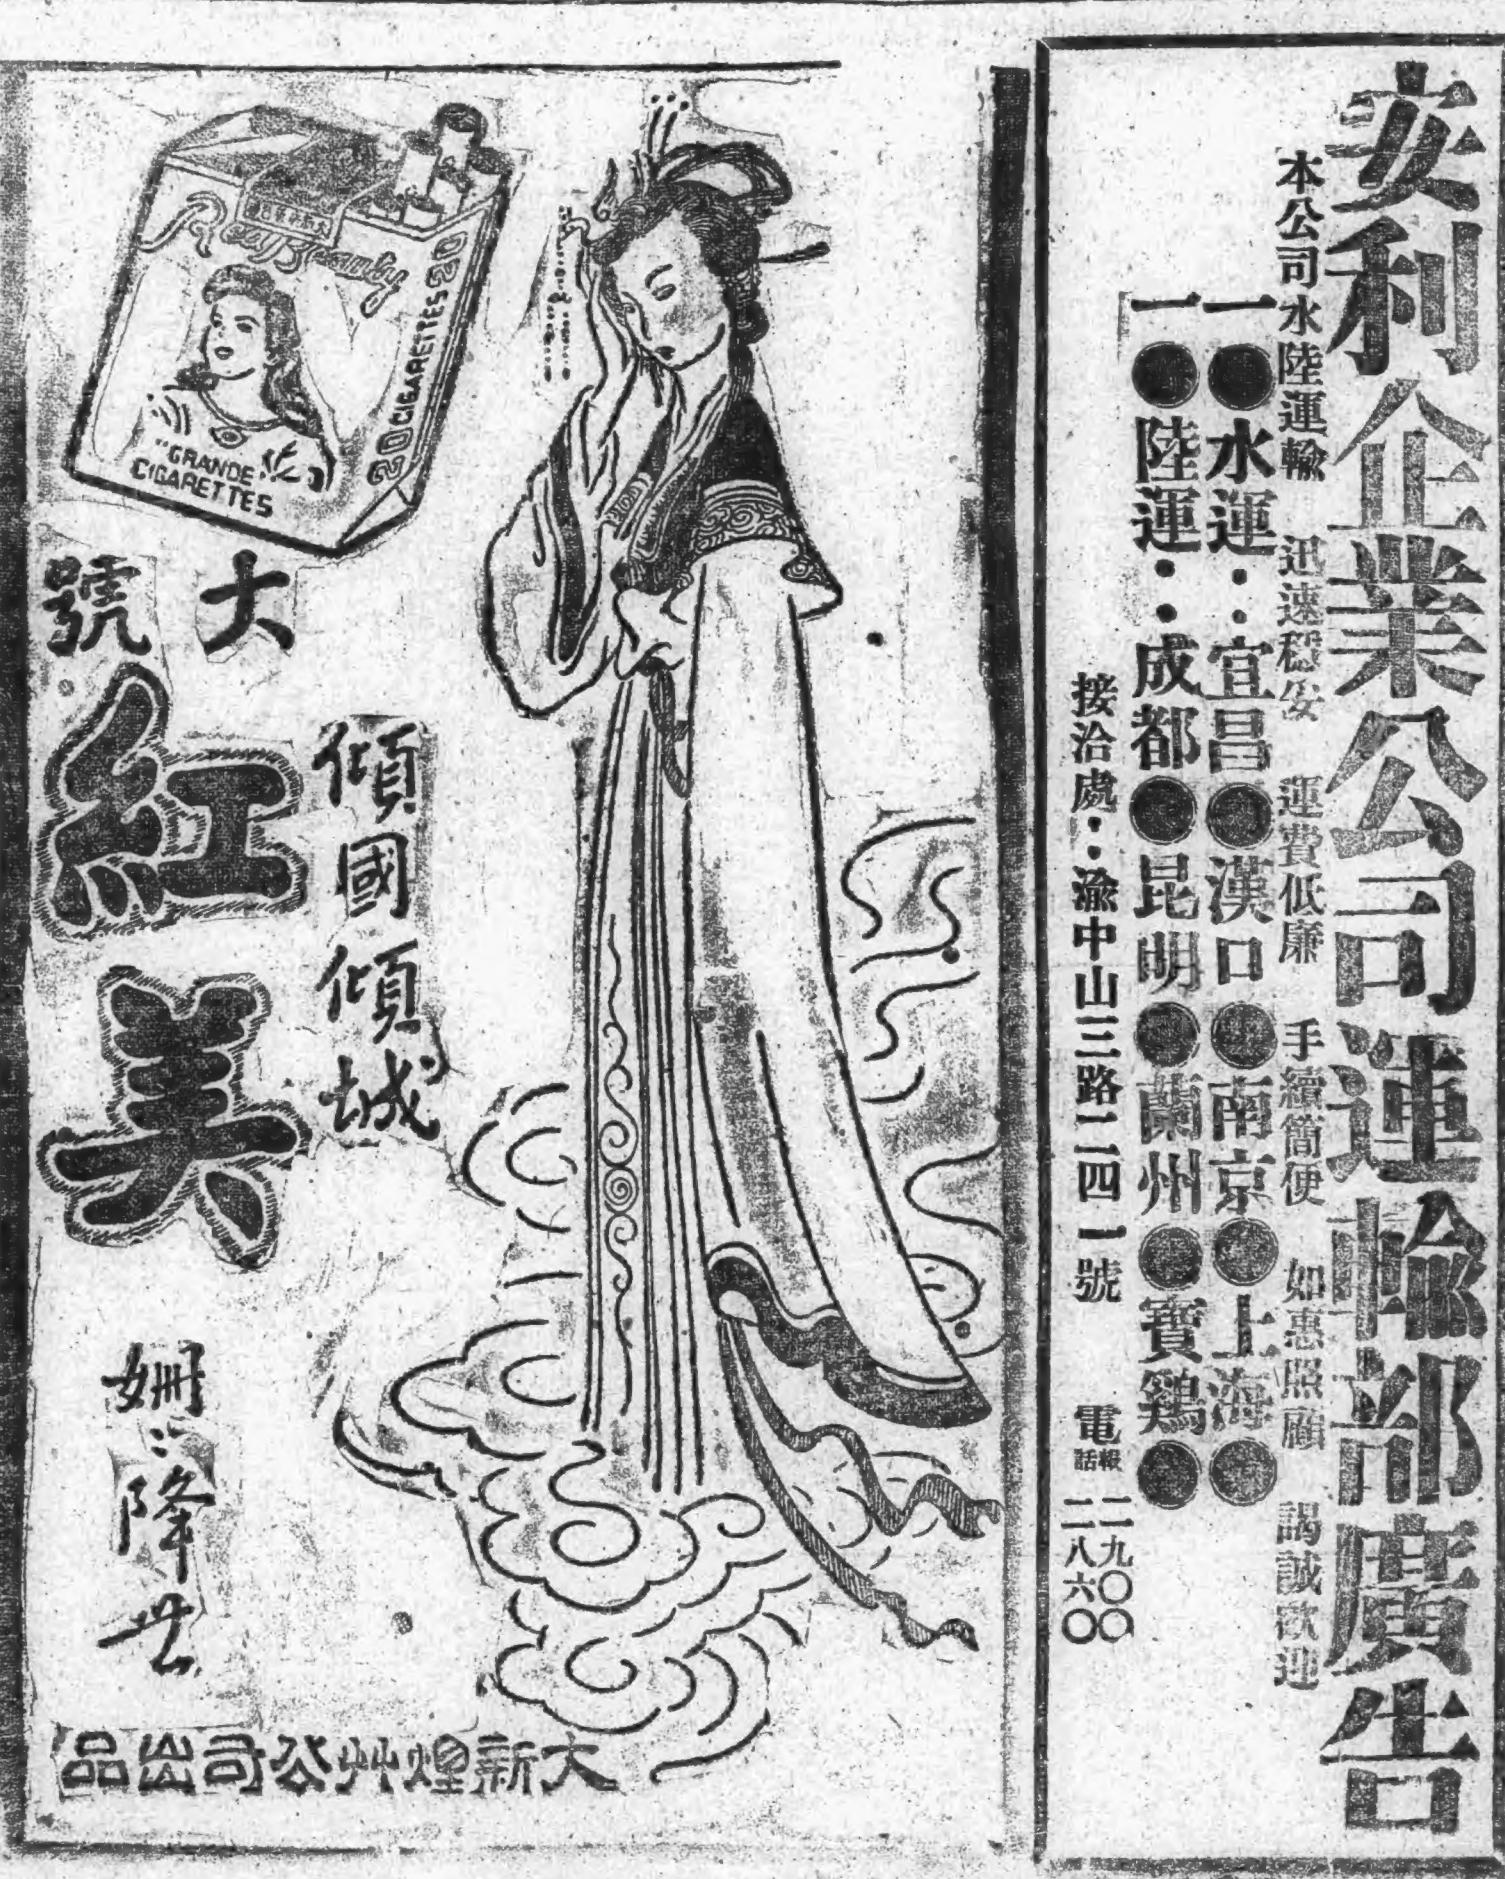 安利企業公司運輸部廣告
本公司水陸運輸 迅速穩妥 運費低廉 手續簡便 如惠照顧 謁誠歡迎
一●水運：宜昌●漢口●南京●上海●
一●陸運：成都●昆明●蘭州●寶鷄●
接洽處：渝中山三路二四一號 電報二九〇〇
話二八六〇
Red Beauty
20 CIGARETTES 20
"GRANDE"
CIGARETTES
大號
紅美
傾國傾城
姍姍降世
大新煙艸公司出品